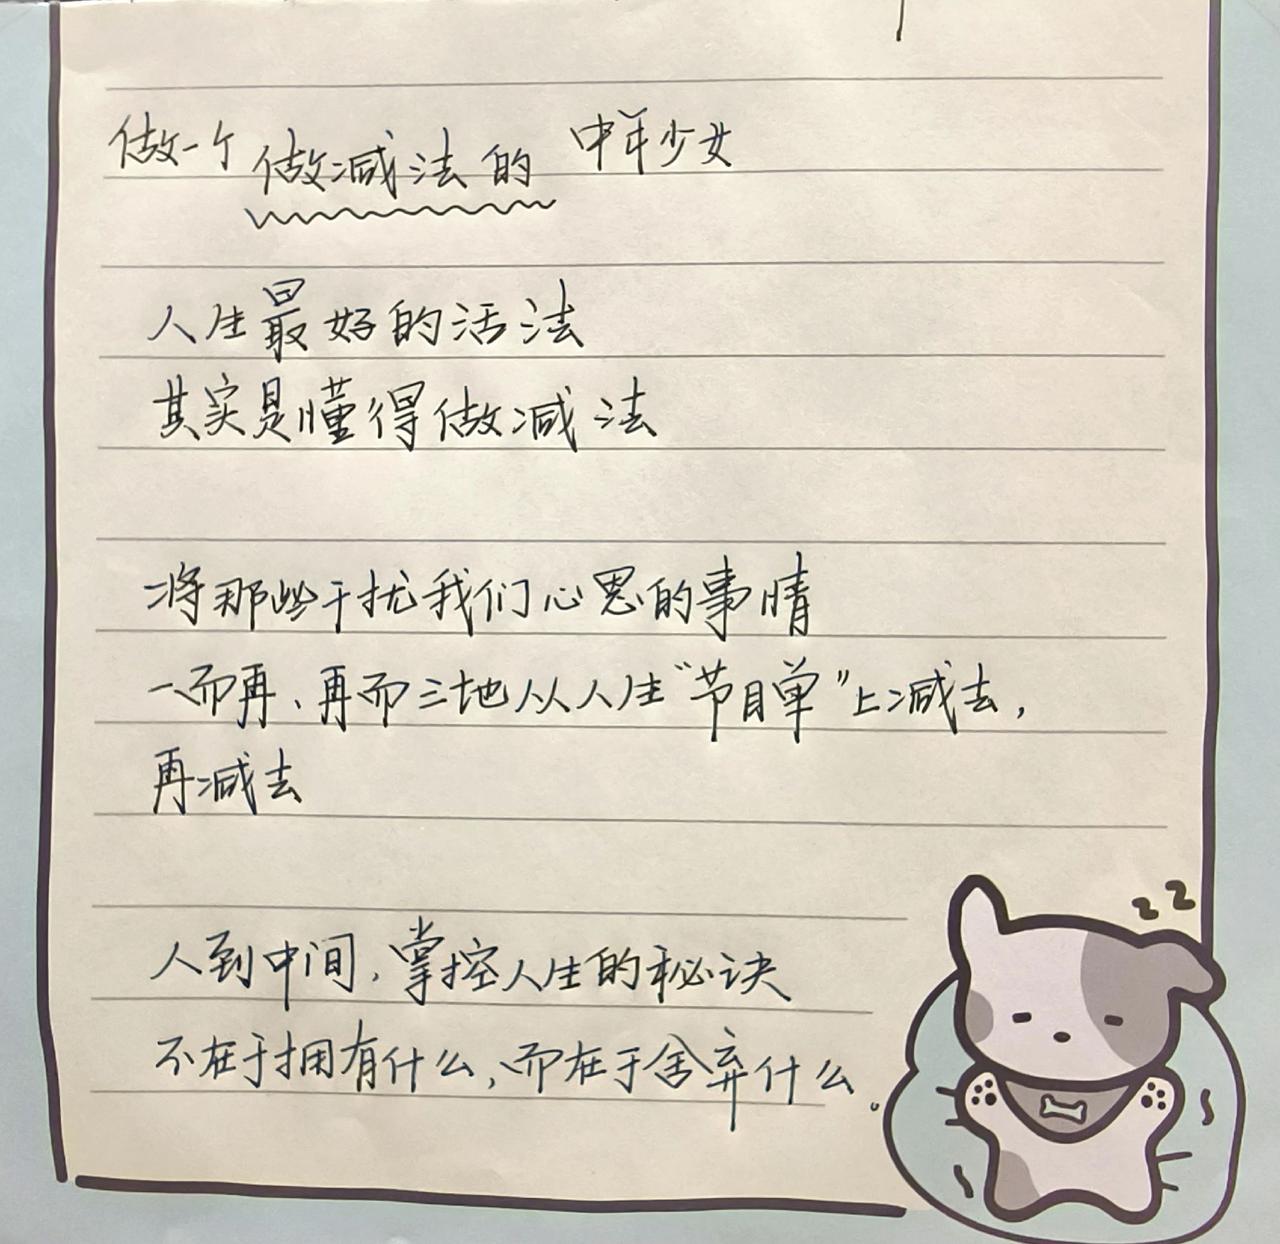 做一个做减法的中年少女
人生最好的活法
其实是懂得做减法
将那些干扰我们心思的事情
一而再、再而三地从人生“节目单”上减去，
再减去
人到中间，掌控人生的秘诀
不在于拥有什么，而在于舍弃什么。
zz